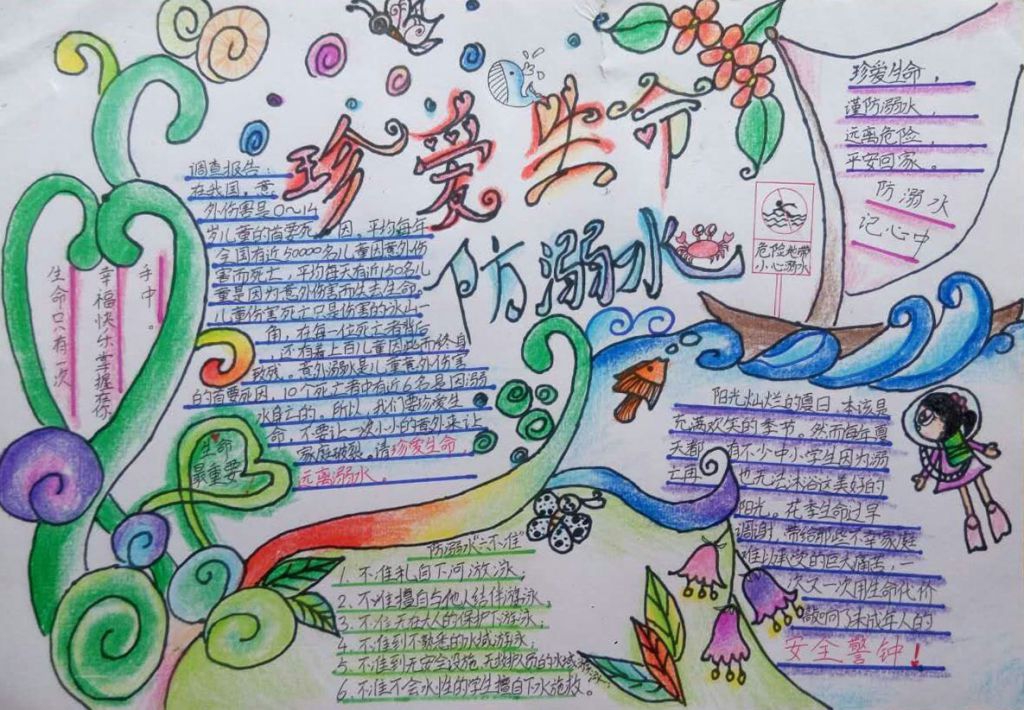 珍爱生命
防溺水
调查报告：
在我国，意
外伤害是0～14
岁儿童的首要死因，平均每年
全国有近50000名儿童因意外伤
害而死亡，平均每天有近150名儿
童是因为意外伤害而失去生命。
儿童伤害死亡只是伤害的冰山一
角，在每一位死亡者背后
还有着上百儿童因此而终身
致残。意外溺水是儿童意外伤害
的首要死因，10个死亡者中有近6名是因溺
水身亡的。所以，我们要珍爱生
命，不要让一次小小的意外来让
家庭破裂。请珍爱生命，
远离溺水。
手中。
幸福快乐掌握在你
生命只有一次
生命
最重要
防溺水“六不准”
1、不准私自下河游泳；
2、不准擅自与他人结伴游泳；
3、不准无大人的保护下游泳；
4、不准到不熟悉的水域游泳；
5、不准到无安会设施、无救护人员的水域游泳；
6、不准不会水性的学生擅自下水施救。
珍爱生命，
谨防溺水，
远离危险，
平安回家。
防溺水
记心中
危险地带
小心溺水
阳光灿烂的夏日，本该是
充满欢笑的季节。然而每年夏
天都有不少中小学生因为溺
亡再也无法沐浴这美好的
阳光。花季生命过早
凋谢，带给那些不幸家庭
难以承受的巨大痛苦，一
次又一次用生命代价
敲响了未成年人的
安全警钟！